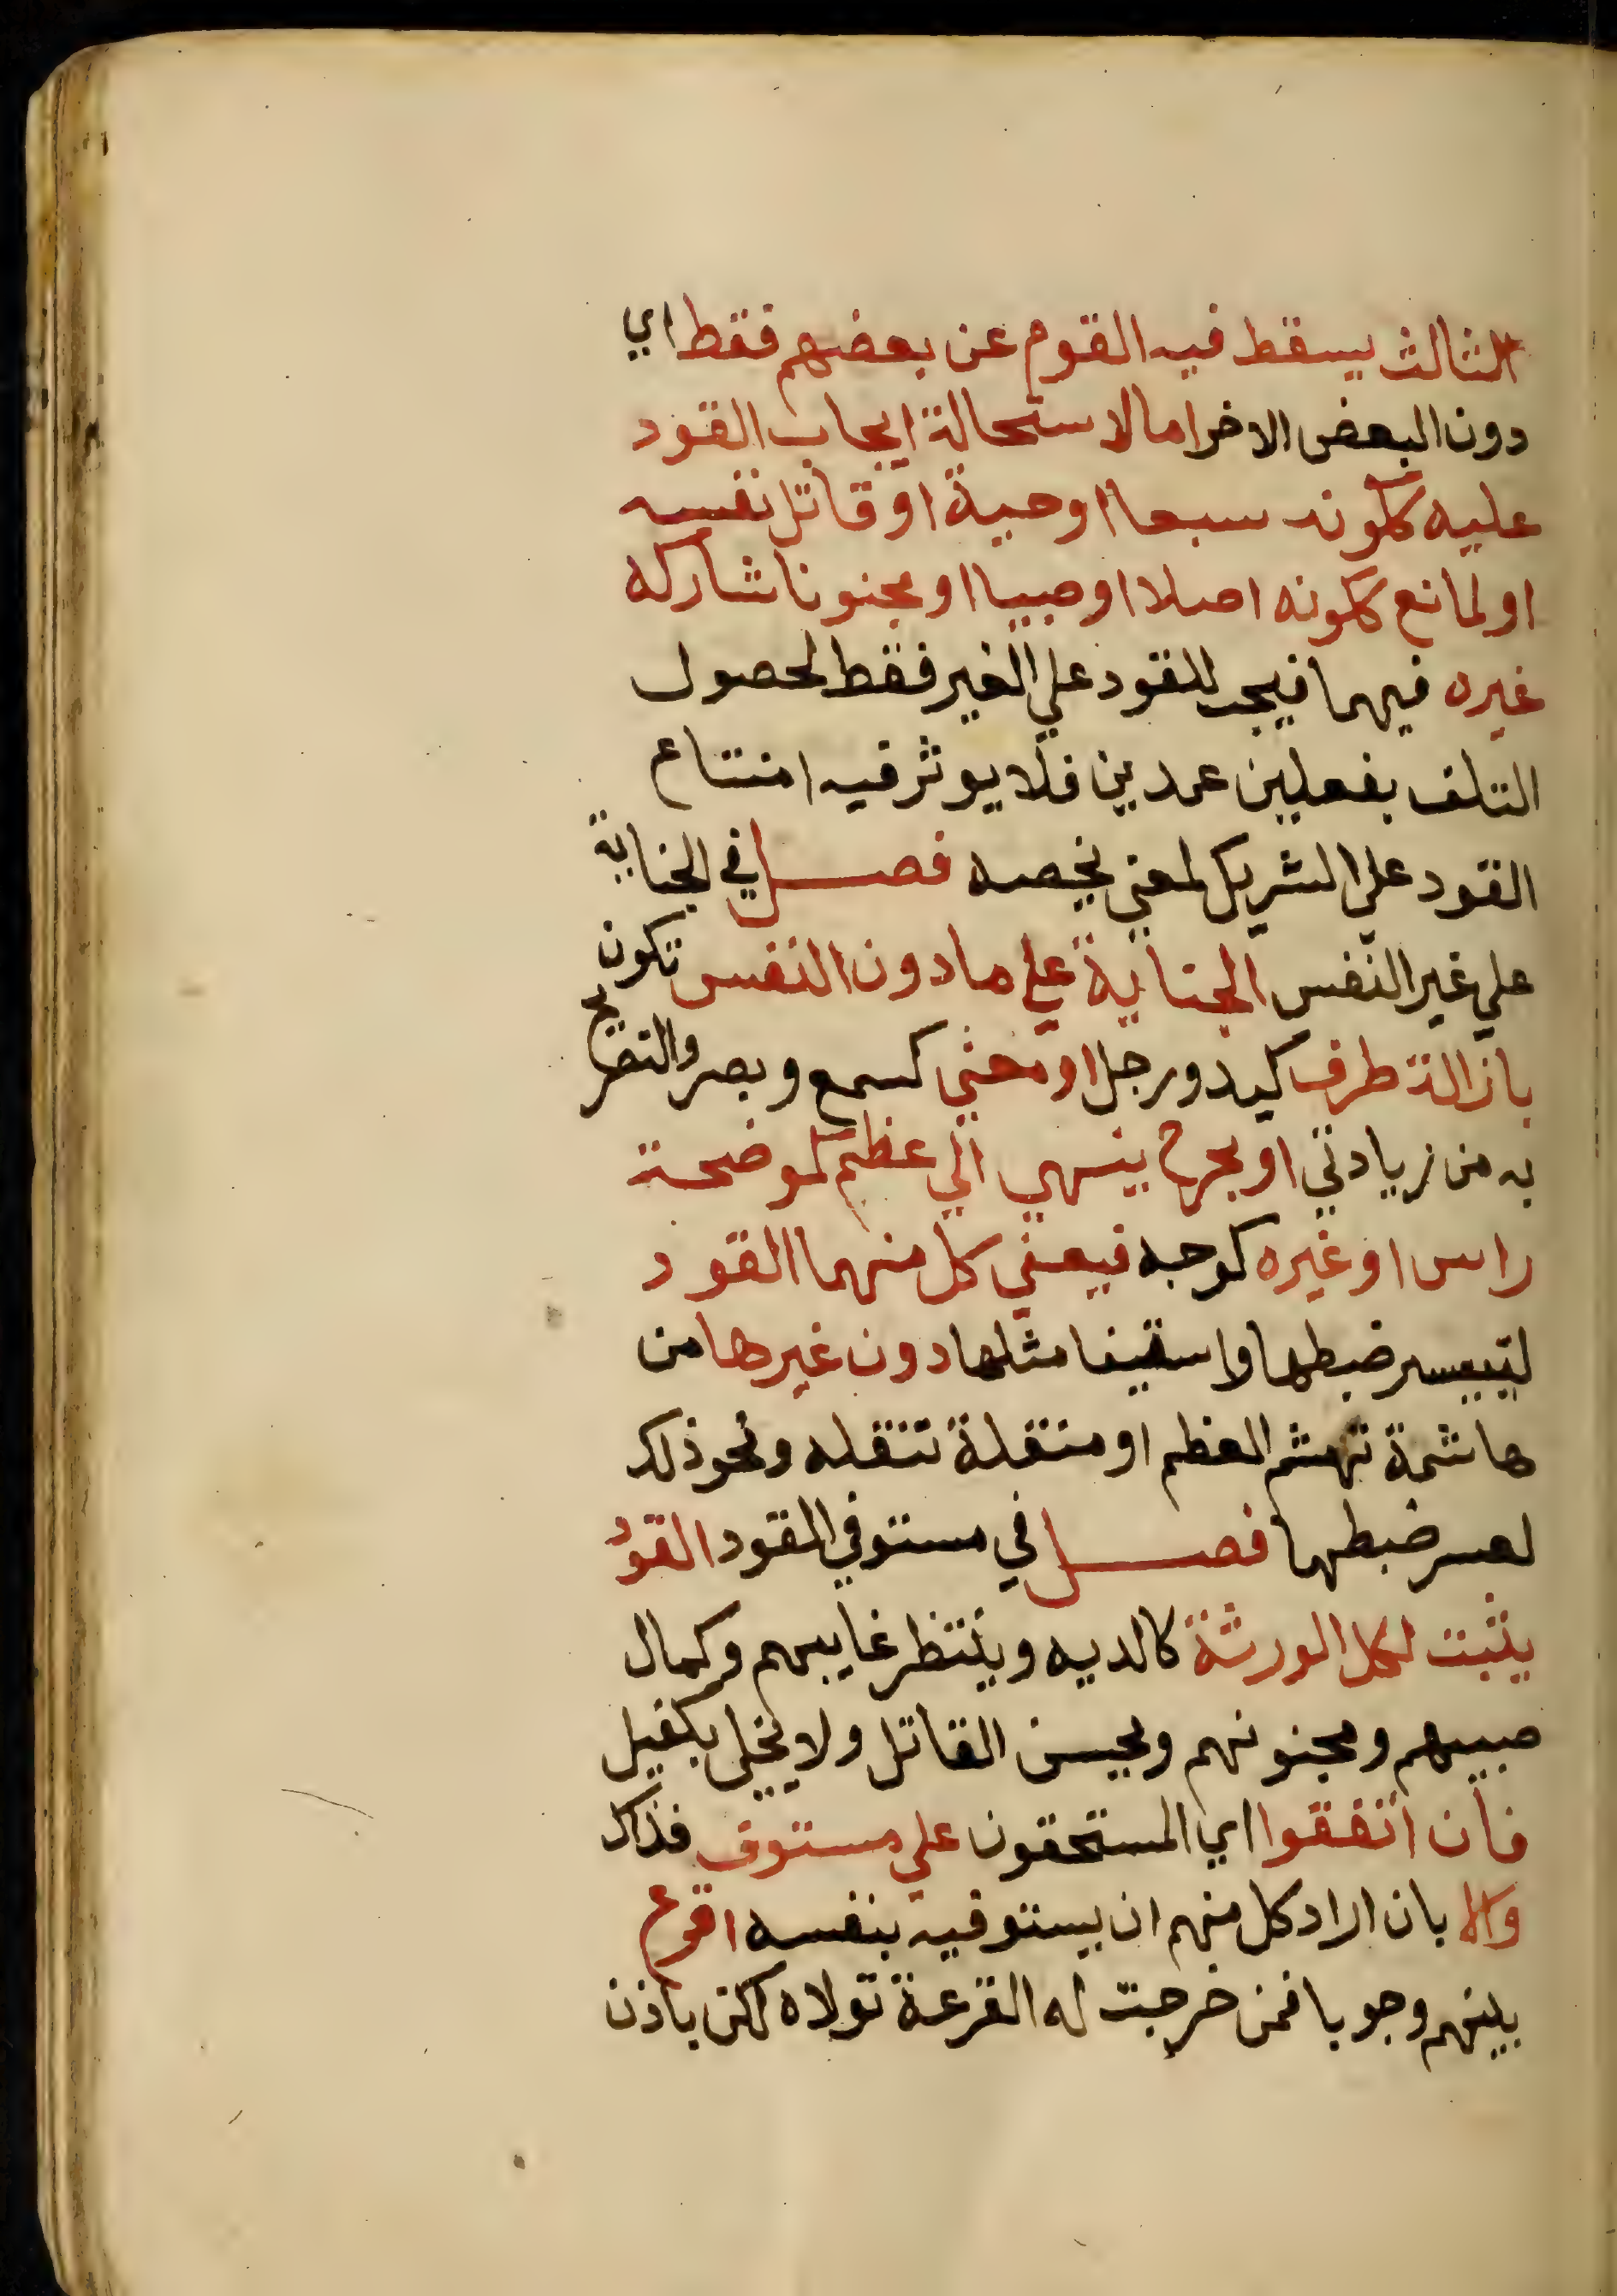 الثالث يسقط فيه القوم عن بعضهم فقط اي
دون البعض الاخر اما لاستحالة ايجاب القود
عليه ككونه سبعا او حية او قاتل نفسه
او لمانع ككونه اصلا او صبيا او مجنونا شاركه
غيره فيهما فيجب القود علي الغير فقط لحصول
التلف بفعلين عمدين فلا يوثر فيه امتناع
القود علي الشريك لمعني يخصه فصل في الجناية
علي غير النفس الجناية علي ما دون النفس تكون
بازالة طرف كيد ورجل او معني كسمع وبصر والتصريح
به من زيادتي او بجرح ينتهي الي عظم كموضحة
راس او غيره كوجه فيعفي كل منهما القود
لتيسر ضبطها واستيفا مثلها دون غيرها من
هاشمة تهشم العظم او منقلة تنقله ونحو ذلك
لعسر ضبطها فصل في مستوفي القود القود
يثبت لكل الورثة كالديه وينتظر غايبهم وكمال
صبيهم ومجنونهم ويحبس القاتل ولا يخلي بكفيل
فان اتفقوا اي المستحقون علي مستوف فذاك
والا بان اراد كل منهم ان يستوفيه بنفسه اقرع
بينهم وجوبا فمن خرجت له القرعة تولاه لكن باذن